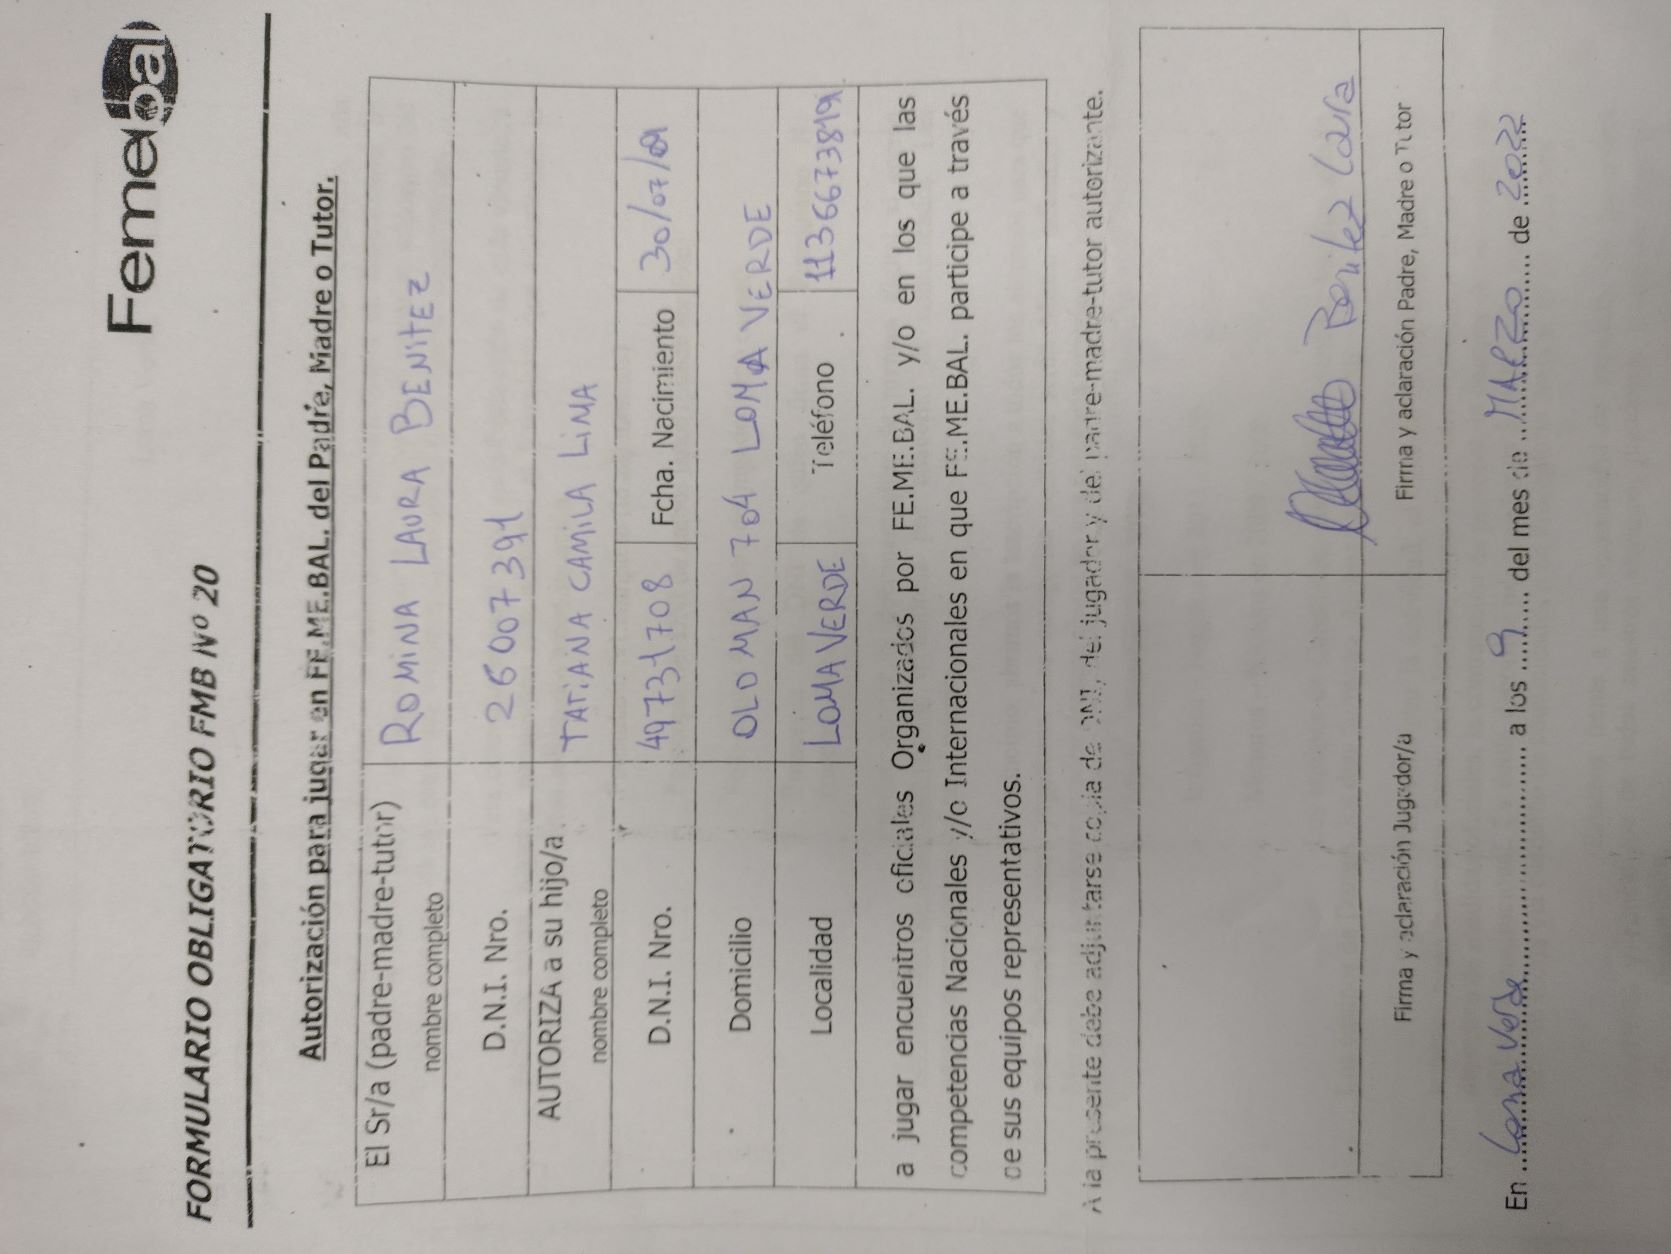 Femebal
FORMULARIO OBLIGATORIO FMB Nº 20
Autorización para jugar en FE.ME.BAL. del Padre, Madre o Tutor.
El Sr/a (padre-madre-tutor) ROMINA LAURA BENITEZ
nombre completo
D.N.I. Nro. 26007391
AUTORIZA a su hijo/a TATIANA CAMILA LIMA
nombre completo
D.N.I. Nro. 49731708 Fcha. Nacimiento 30/07/09
Domicilio OLDMAN 704 LOMA VERDE
Localidad LOMA VERDE Teléfono 1136673819
a jugar encuentros oficiales Organizados por FE.ME.BAL. y/o en los que las
competencias Nacionales y/o Internacionales en que FE.ME.BAL. participe a través
de sus equipos representativos.
A la presente debe adjuntarse copia de DNI, del jugador y del padre-madre-tutor autorizante.
Benitez Laura
Firma y aclaración Jugador/a Firma y aclaración Padre, Madre o Tutor
En Loma Verde a los 9 del mes de MARZO de 2022